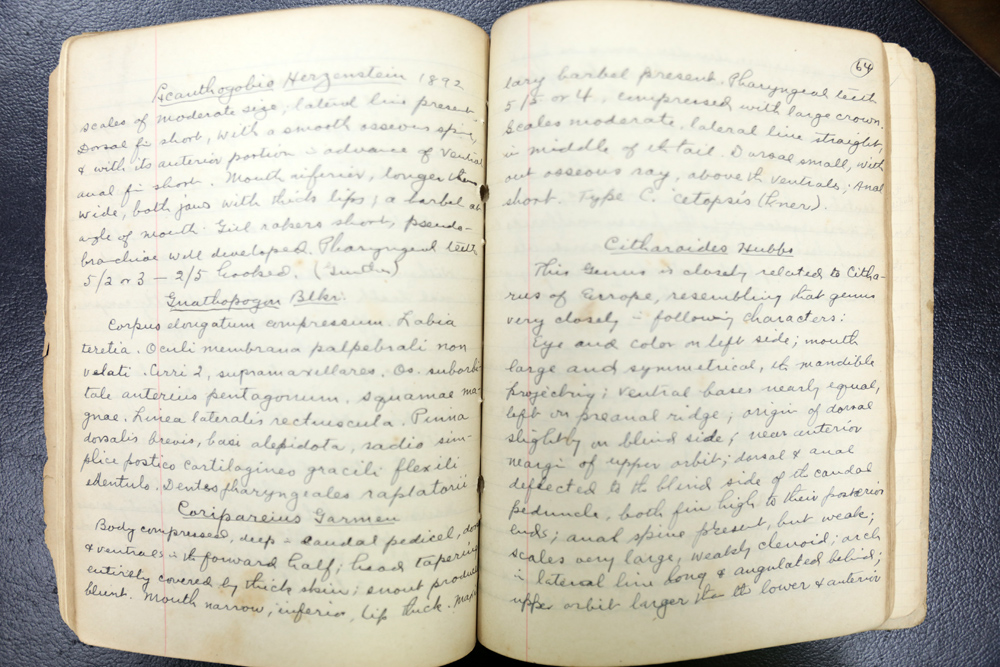 Acanthogobio Herzenstein 1892
Scales of moderate size, lateral line present
Dorsal fin short, with a smooth osseous spine,
& with its anterior portion in advance of ventral
anal fin short. Mouth inferior, longer than
wide, both jaws with thick lips; a barbel at
angle of mouth. Gill rakers short, pseudo-
branchiae well developed. Pharyngeal teeth
5/2 or 3 — 2/5 hooked. (Gunther)
Gnathopogon Blkr.
Corpus elongatum compressum. Labia
teretia. Oculi membrana palpebrali non
velati. Cirri 2, supramaxillares. Os. suborbi-
tale anterius pentagonum. Squamae ma-
gnae. Linea lateralis rectiuscula. Pinna
dorsalis brevis, basi alepidota, radio sim-
plice postico cartilagineo gracili flexili
edentulo. Dentes pharyngeales raptatorii
Coripareius Garman
Body compressed, deep in caudal pedicel, dor
& ventrals in the forward half; head tapering
entirely covered by thick skin; snout produced
blunt. Mouth narrow, inferior, lip thick. Maxil
64
lary barbel present. Pharyngeal teeth
5/5 or 4, compressed with large crown.
Scales moderate, lateral line straight,
in middle of the tail. Dorsal small, with
out osseous ray, above the ventrals; Anal
short. Type C. cetopsis (Kner).
Citharoides Hubbs
This Genus is closely related to Citha-
rus of Europe, resembling that genus
very closely in following characters:
Eye and color on left side; mouth
large and symmetrical, the mandible
projecting; ventral bases nearly equal,
left on preanal ridge; origin of dorsal
slightly on blind side, near anterior
margin of upper orbit; dorsal & anal
deflected to the blind side of the caudal
peduncle, both fin high to their posterior
ends; anal spine present, but weak;
scales very large, weakly ctenoid; arch
in lateral line long & angulated behind;
upper orbit larger than the lower & anterior